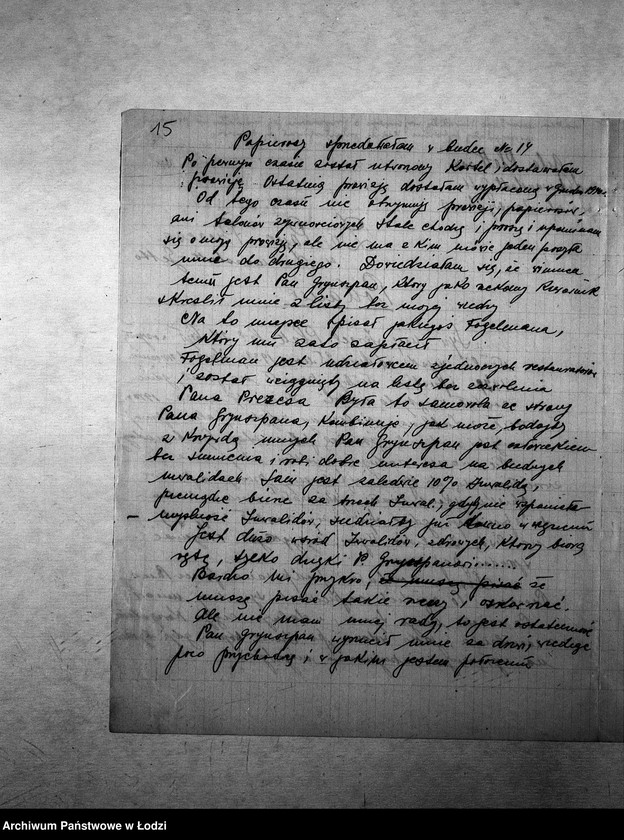 15
Papierosy sprzedałam w budce No. 14
Po pewnym czasie został utworzony Kartel, dostawałam
i prowizję. Ostatnią prowizję dostałam wypłaconą w grudniu
Od tego czasu nie otrzymuję prowizji, papierosów,
ani talonów żywnościowych stale chodzę, i proszę i upominam
się o moją prowizję, ale nie ma z kim mówić jeden posyła
mnie do drugiego. Dowiedziałam się, że winien
temu jest Pan Grynszpan, który jako
skreślił mnie z listy bez mojej wiedzy
Na to miejsce wpisał jakiegoś Fogelmana,
który mu za to zapłacił
Fogelman jest udziałowcem zjednoczonych restauratorów
i został wciągnięty na listę bez zezwolenia
Pana Prezesa Była to samowola ze strony
Pana Grynszpana, Kombinuje, jak może, bodajby
z krzywdą innych Pan Grynszpan jest człowiekiem
bez sumienia i robi dobre interesa na biednych
inwalidach Sam jest zaledwie 10% Inwalidą
pieniądze bierze za trzech Inwal., gdyby nie wspaniała
Inwalidów, siedziałby już dawno w więzieniu
Jest dużo wśród Inwalidów, zdrowych, którzy biorą
rentę, tylko dzięki P. Grynszpanowi......
Bardzo mi przykro, że muszę pisać że
muszę pisać takie rzeczy i oskarżać.
Ale nie mam innej rady, to jest ostateczność
Pan Grynszpan wyrzucił mnie za drzwi, wiedząc
poco przychodzę i w jakim jestem położeniu